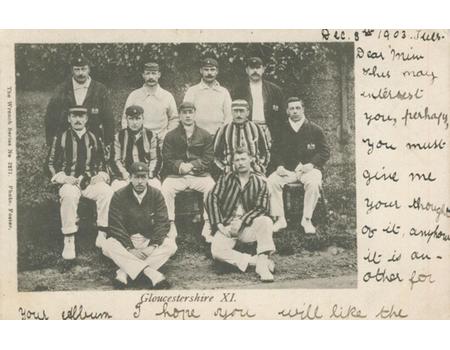 Dec. 8th 1903. Tues.
Dear Mim
this may
interest
you, perhaps,
you must
give me
your thoughts
of it, anyhow
it is an-
other for
The Wrench Series No 2971. Photo, Foster.
Gloucestershire XI.
your Album I hope you will like the